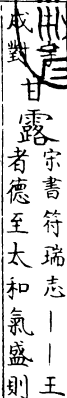 成對
甘露
宋書符瑞志｜｜王
者德至太和氣盛則